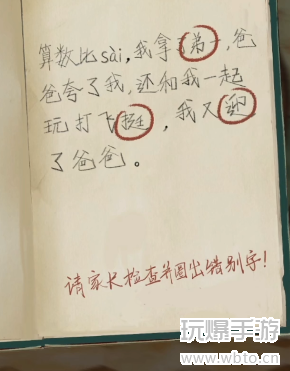 算数比sài,我拿了弟一,爸
爸夸了我,还和我一起
玩打飞挺,我又迎
了爸爸。
请家长检查并圈出错别字!
玩爆手游
www.wbto.cn